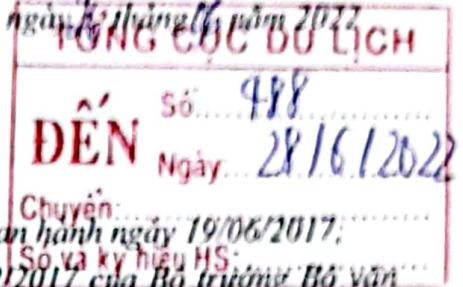 ngày tháng năm 2022
TỔNG CỤC DU LỊCH
ĐẾN
Số: 988
Ngày: 28/6/2022
Chuyển:
an hành ngày 19/06/2017;
Số và ký hiệu HS:
/2017 của Bộ trưởng Bộ Văn